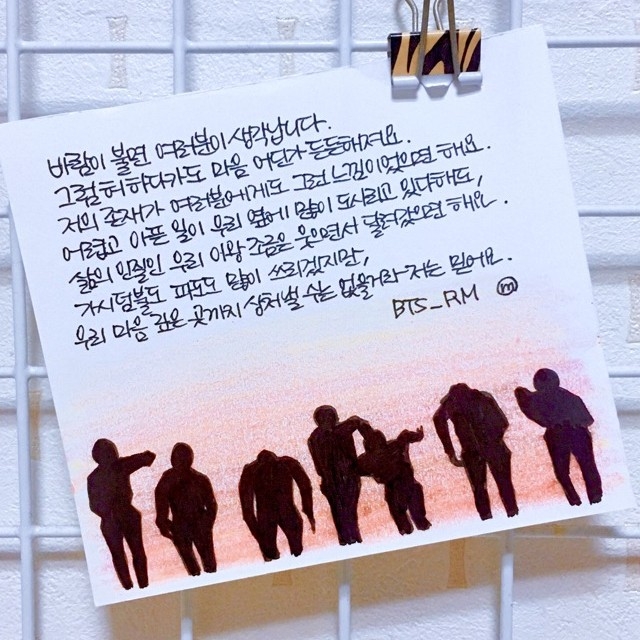 바람이 불면 여러분이 생각납니다.
그럼 허하다가도 마음 어딘가 든든해져요.
저의 존재가 여러분에게도 그런 느낌이었으면 해요.
어렵고 아픈 일이 우리 옆에 많이 도사리고 있다해도,
삶의 인질인 우리 이왕 조금은 웃으면서 달려갔으면 해요.
가시덤불도 파도도 많이 쓰리겠지만,
우리 마음 깊은 곳까지 상처낼 수는 없을거라 저는 믿어요.
BTS_RM ⓜ